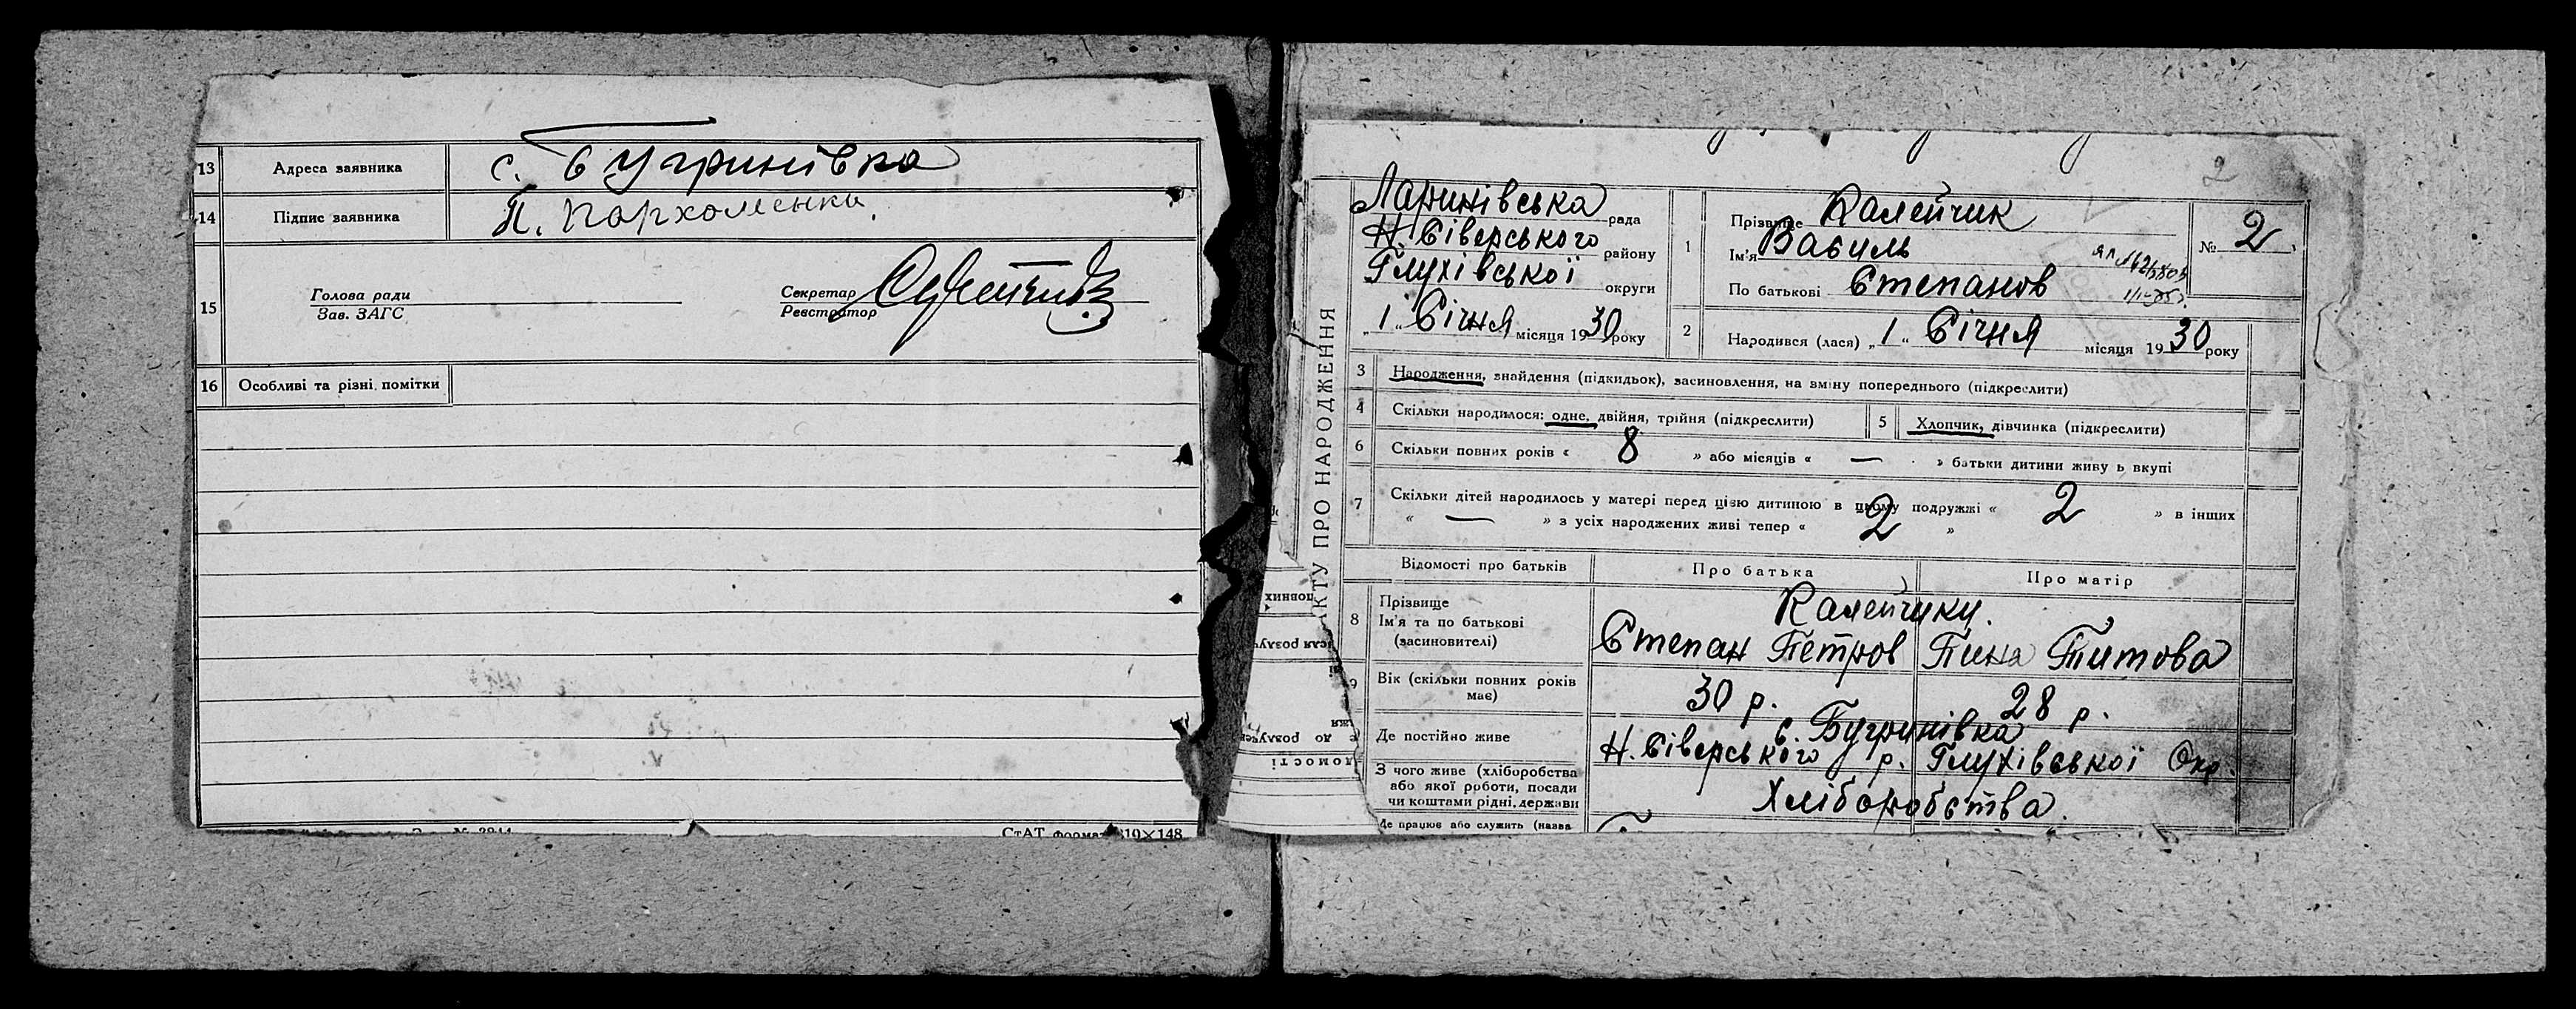 13 Адреса заявника с. Бугринівка
14 Підпис заявника П. Пархоменки
15 Голова ради
Зав. ЗАГС
Секретар
Реєстратор
16 Особливі та різні помітки
СтАТ формат 210×148
2
АКТУ ПРО НАРОДЖЕННЯ
Ларинівська рада
Н. Сіверського району
Глухівської округи
„1“ Січня місяця 1930 року
1 Прізвище Калейчик
Ім'я Василь
По батькові Степанов
№ 2
2 Народився (лася) „1“ Січня місяця 1930 року
3 Народження, знайдення (підкидьок), засиновлення, на зміну попереднього (підкреслити)
4 Скільки народилося: одне, двійня, трійня (підкреслити)
5 Хлопчик, дівчинка (підкреслити)
6 Скільки повних років « 8 » або місяців « — » батьки дитини живу ь вкупі
7 Скільки дітей народилось у матері перед цією дитиною в цьому подружжі « 2 » в інших
« — » з усіх народжених живі тепер « 2 »
Відомості про батьків Про батька Про матір
8 Прізвище Калейчики.
Ім'я та по батькові
(засновителі) Степан Петров Тита Титова
9 Вік (скільки повних років має) 30 р. 28 р.
Де постійно живе с. Бугринівка
Н. Сіверського р. Глухівської Окр.
З чого живе (хліборобства
або якої роботи, посади
чи коштами рідні, держави Хліборобства.
Де працює або служить (назва